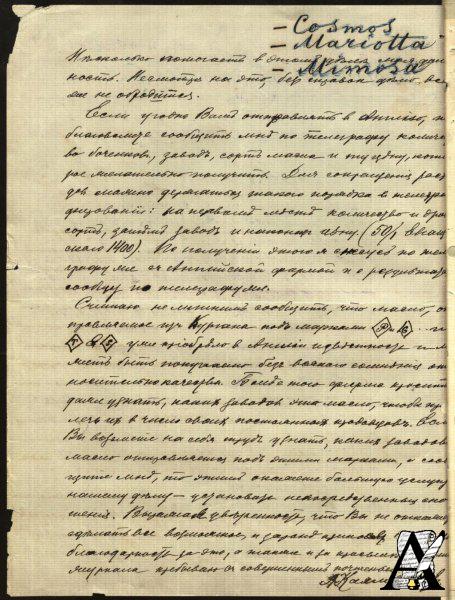 — Cosmos
— Mariotta
— Mimosa
помогаетъ в этомъ
ность. Несмотря на это, без справок дѣло
не обойдется.
Если угодно Вамъ отправлять в Англію,
благоволите сообщить мнѣ по телеграфу количе
во боченковъ, заводъ, сортъ масла и ту цѣну, кото
рое желательно получить. Для сокращенія расх
дов можно держаться такого порядка в телегра
фировании: на первомъ мѣстѣ количество и
сортъ, затѣмъ заводъ и наконецъ цѣну (50/1
1400). По получении этого я снесусь по теле
графу же съ Англійской фирмой и о результатѣ
сообщу по телеграфу же.
Считаю не лишнимъ сообщить, что масло, от
правляемое изъ Кургана подъ марками
уже приобрѣло в Англии известность и
жетъ быть получаемо безъ всякого сомнѣния от
носительно качества. Посему фирма проситъ
узнать, какихъ заводовъ это масло, чтобы
лечь ихъ в число своихъ постоянныхъ продавцовъ. Если
Вы возьмете на себя трудъ узнать, какихъ заводовъ
масло отправляется подъ этими марками, и сооб
щите мнѣ, то этимъ окажете большую услугу
нашему дѣлу — установите непосредственныя сно
шения. Выражая уверенность, что Вы не откажете
сделать все возможное, и заранѣе принося
благодарность за это, а также и за
журнала пребываю съ совершеннымъ почтениемъ